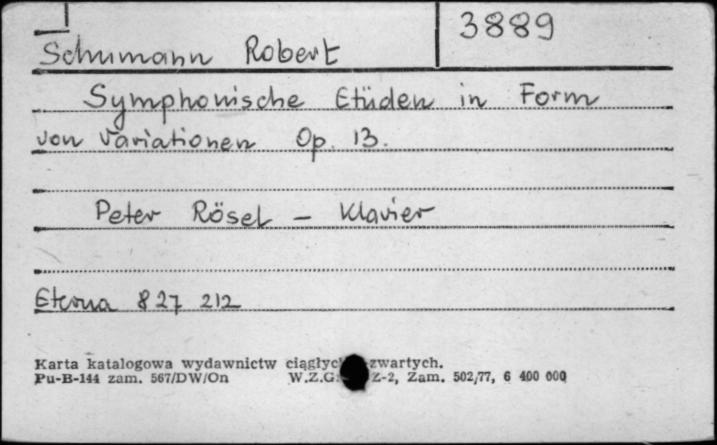 3889
Schumann Robert
Symphonische Etüden in Form
von Variationen Op. 13.
Peter Rösel – Klavier
Eterna 827 212
Karta katalogowa wydawnictw zwartych.
Pu-B-144 zam. 567/DW/On W.Z.G. Z-2, Zam. 502/77, 6 400 000